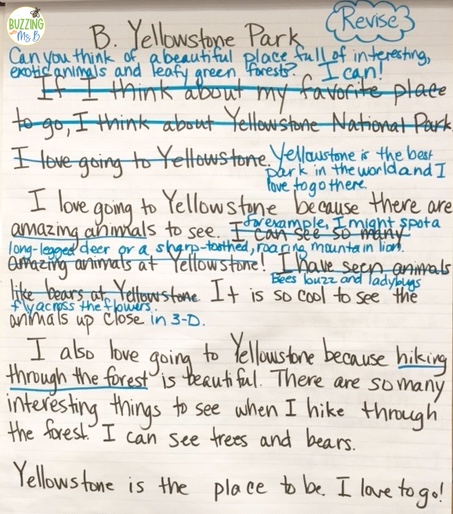 BUZZING
with
Ms. B
Revise
B. Yellowstone Park
Can you think of a beautiful place full of interesting,
exotic animals and leafy green forests? I can!
If I think about my favorite place
to go, I think about Yellowstone National Park.
I love going to Yellowstone. Yellowstone is the best
park in the world and I
love to go there.
I love going to Yellowstone because there are
amazing animals to see. I can see so many
for example, I might spot a
long-legged deer or a sharp-toothed, roaring mountain lion.
amazing animals at Yellowstone! I have seen animals
Bees buzz and ladybugs
like bears at Yellowstone It is so cool to see the
fly across the flowers.
animals up close in 3-D.
I also love going to Yellowstone because hiking
through the forest is beautiful. There are so many
interesting things to see when I hike through
the forest. I can see trees and bears.
Yellowstone is the place to be. I love to go!